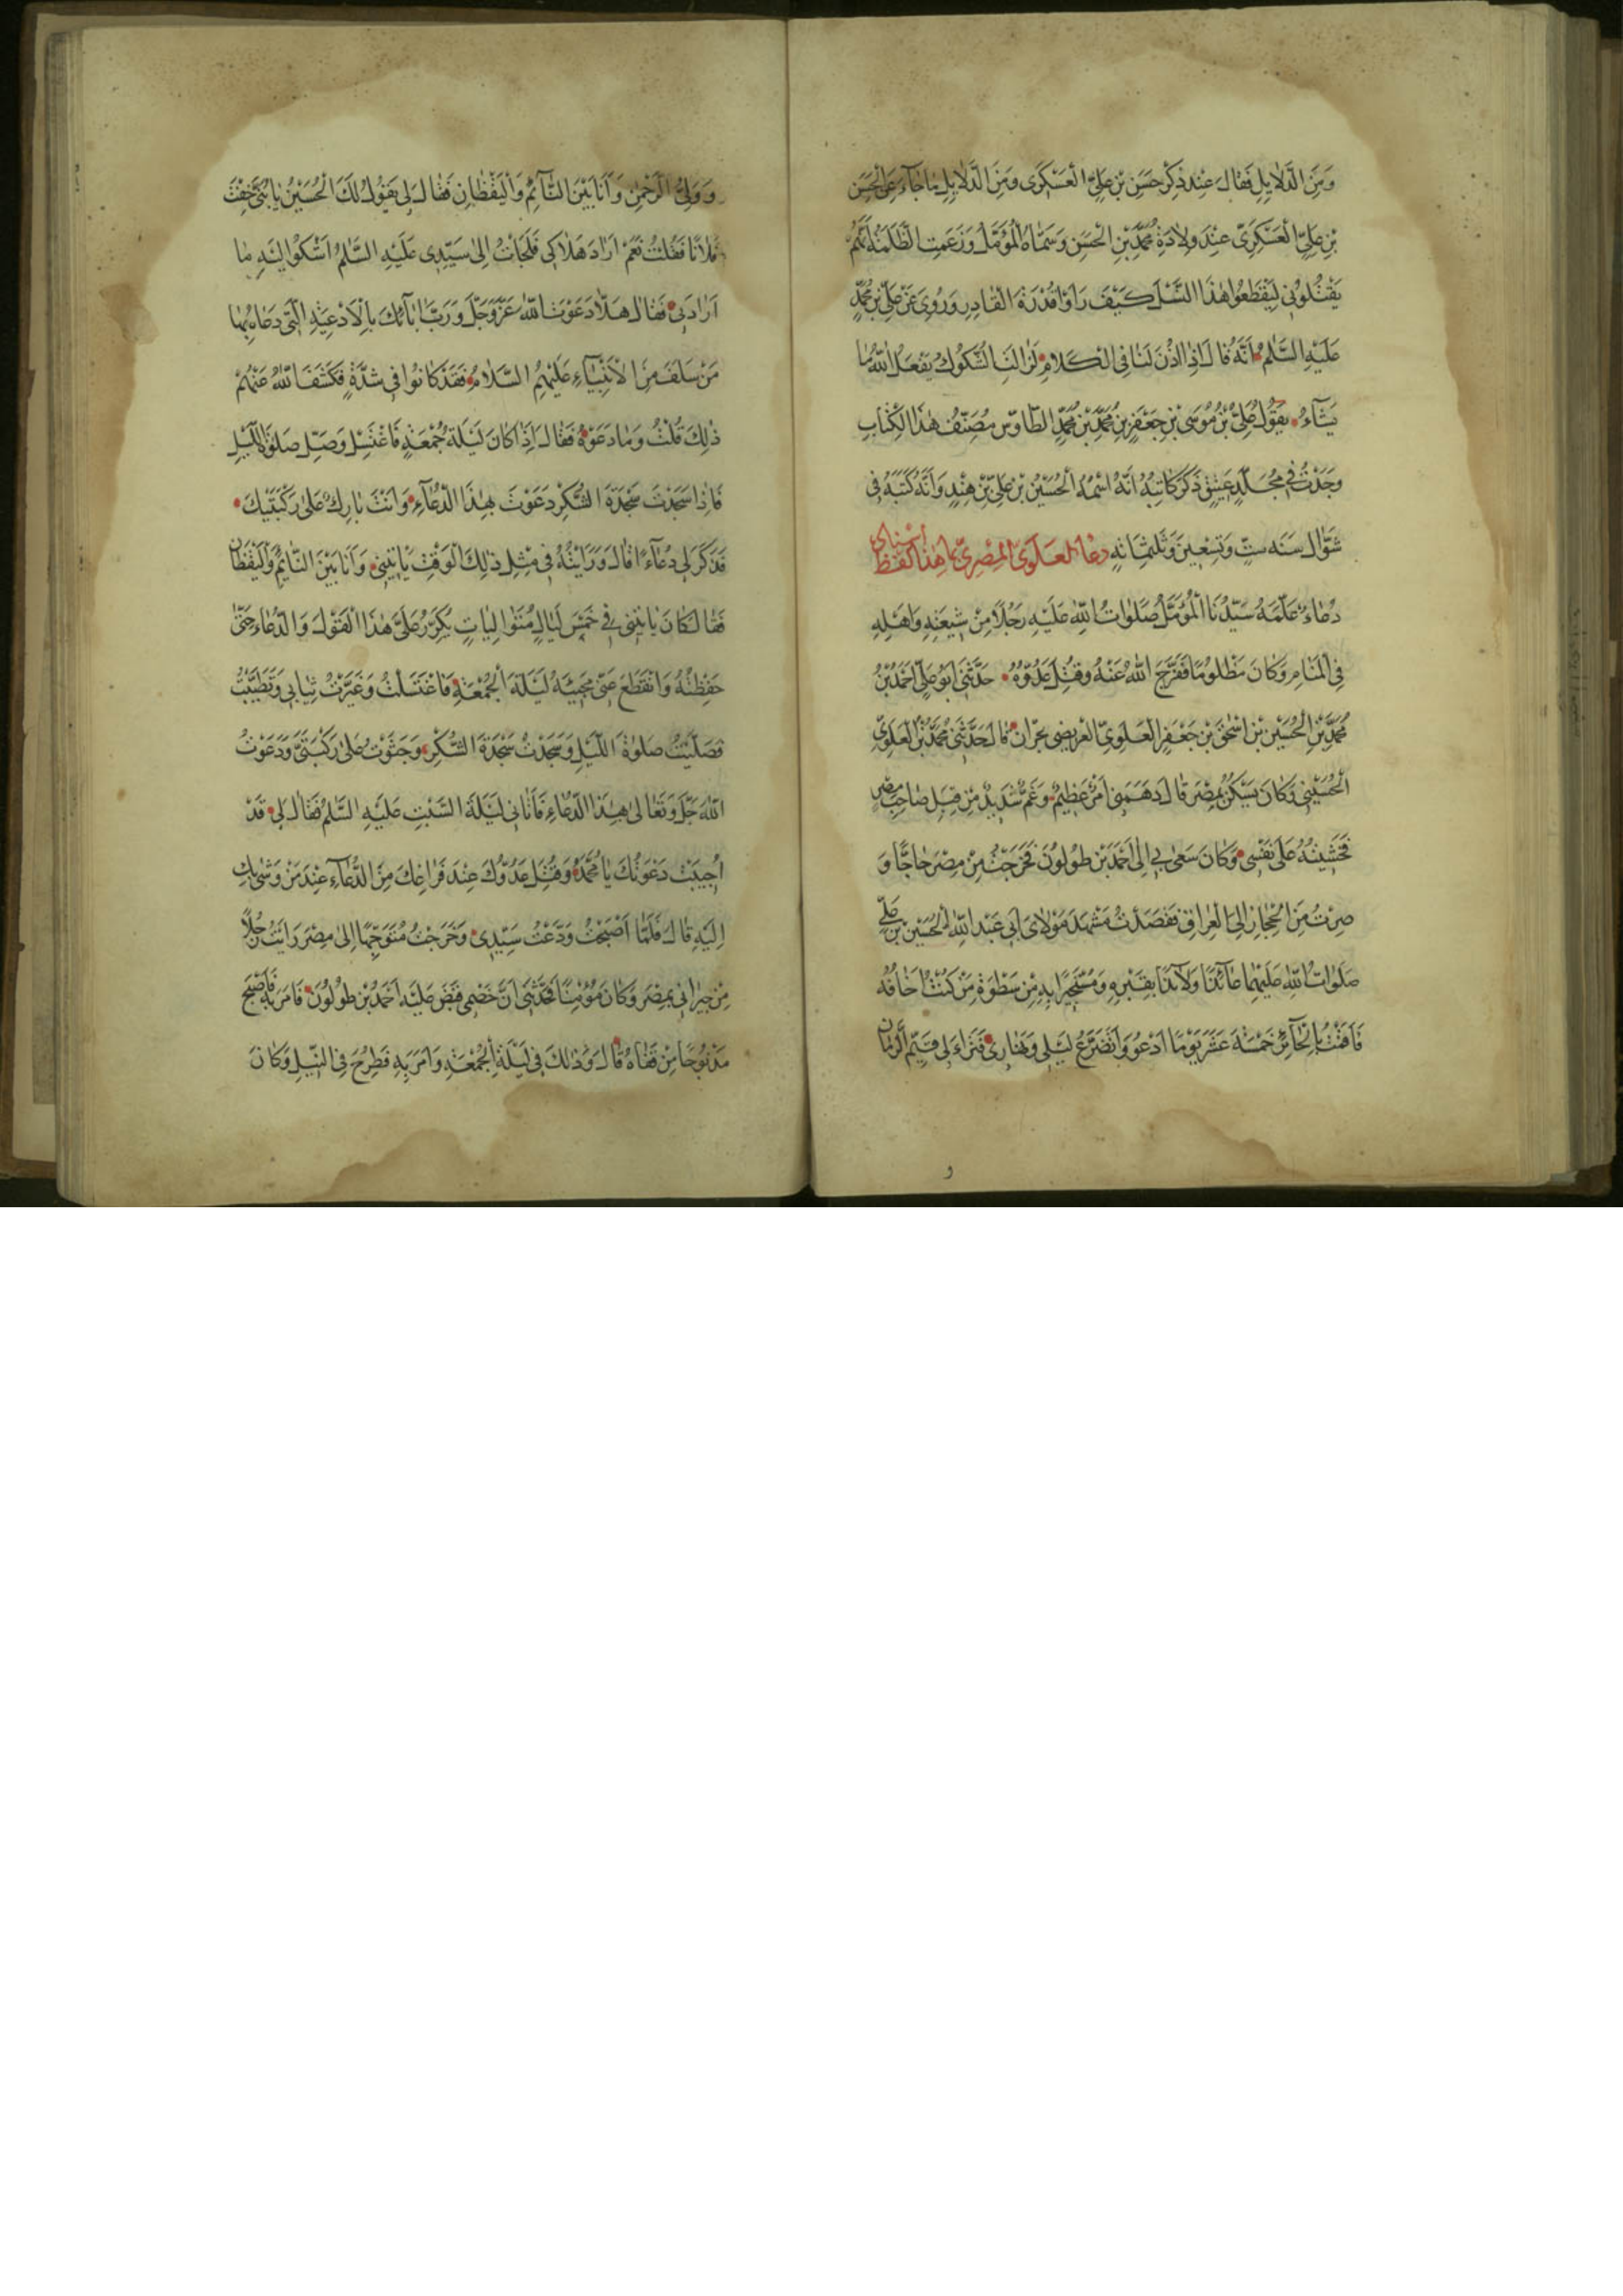 وَمِنَ الدَّلَايِلِ فَقَالَ عِنْدَ ذِكْرِ حَسَنِ بْنِ عَلِيٍّ الْعَسْكَرِي وَمِنَ الدَّلَايِلِ مَا جَاءَ عَنِ الْحَسَنِ
بْنِ عَلِيٍّ الْعَسْكَرِيِّ عِنْدَ وِلَادَةِ مُحَمَّدِ بْنِ الْحَسَنِ وَسَمَّاهُ الْمُؤَمَّلُ وَزَعَمَتِ الظَّلَمَةُ أَنَّهُمْ
يَقْتُلُونِي لِيَقْطَعُوا هٰذَا النَّسْلَ كَيْفَ رَأَوْا قُدْرَةَ الْقَادِرِ وَرُوِيَ عَنْ عَلِيِّ بْنِ مُحَمَّدٍ
عَلَيْهِ السَّلٰمُ أَنَّهُ قَالَ إِذَا أُذِنَ لَنَا فِي الْكَلَامِ لَزَالَتِ الشُّكُوكُ يَفْعَلُ اللّٰهُ مَا
يَشَآءُ يَقُولُ عَلِيُّ بْنُ مُوسَى بْنِ جَعْفَرِ بْنِ مُحَمَّدِ بْنِ مُحَمَّدٍ الطَّاوُسِ مُصَنِّفُ هٰذَا الْكِتَابِ
وَجَدْتُ فِي مُجَلَّدٍ عَتِيقٍ ذَكَرَ كَاتِبُهُ أَنَّهُ اسْمُهُ الْحُسَيْنُ بْنُ عَلِيِّ بْنِ هِنْدٍ وَأَنَّهُ كَتَبَهُ فِي
شَوَّالَ سَنَةَ سِتٍّ وَتِسْعِينَ وَثَلٰثِمِائَةٍ دُعَاءَ الْعَلَوِيِّ الْمِصْرِيِّ مَا هٰذَا لَفْظُ
دُعَاءٌ عَلَّمَهُ سَيِّدُنَا الْمُؤَمَّلُ صَلَوَاتُ اللّٰهِ عَلَيْهِ رَجُلًا مِنْ شِيعَتِهِ وَأَهْلِهِ
فِي الْمَنَامِ وَكَانَ مَظْلُومًا فَفَرَّجَ اللّٰهُ عَنْهُ وَقُتِلَ عَدُوُّهُ حَدَّثَنِي أَبُو عَلِيٍّ أَحْمَدُ بْنُ
مُحَمَّدِ بْنِ الْحُسَيْنِ بْنِ إِسْحٰقَ بْنِ جَعْفَرٍ الْعَلَوِيُّ الْعُرَيْضِي بِحَرَّانَ قَالَ حَدَّثَنِي مُحَمَّدُ بْنُ الْعَلَوِيِّ
الْحُسَيْنِي وَكَانَ يَسْكُنُ بِمِصْرَ قَالَ دَهَمَنِي أَمْرٌ عَظِيمٌ وَغَمٌّ شَدِيدٌ مِنْ قِبَلِ صَاحِبِ مِصْرَ
فَخَشِيتُهُ عَلَى نَفْسِي وَكَانَ سَعَى بِي إِلَى أَحْمَدَ بْنِ طُولُونَ فَخَرَجْتُ مِنْ مِصْرَ حَاجًّا وَ
صِرْتُ مِنَ الْحِجَازِ إِلَى الْعِرَاقِ فَقَصَدْتُ مَشْهَدَ مَوْلَايَ أَبِي عَبْدِ اللّٰهِ الْحُسَيْنِ بْنِ عَلِيٍّ
صَلَوَاتُ اللّٰهِ عَلَيْهِمَا عَائِذًا وَلَائِذًا بِقَبْرِهِ وَمُسْتَجِيرًا بِهِ مِنْ سَطْوَةِ مَنْ كُنْتُ أَخَافُهُ
فَأَقَمْتُ بِالْحَآئِرِ خَمْسَةَ عَشَرَ يَوْمًا أَدْعُو وَأَتَضَرَّعُ لَيْلِي وَنَهَارِي فَتَرَاءَى لِي قَيِّمُ الزَّمَانِ
و
وَوَلِيُّ الرَّحْمٰنِ وَأَنَا بَيْنَ النَّآئِمِ وَالْيَقْظَانِ فَقَالَ لِي يَقُولُ لَكَ الْحُسَيْنُ يَا بُنَيَّ خِفْتَ
فُلَانًا فَقُلْتُ نَعَمْ أَرَادَ هَلَاكِي فَلَجَأْتُ إِلَى سَيِّدِي عَلَيْهِ السَّلٰمُ أَشْكُو إِلَيْهِ مَا
أَرَادَ بِي فَقَالَ هَلَّا دَعَوْتَ اللّٰهَ عَزَّ وَجَلَّ وَرَبَّ آبَآئِكَ بِالْأَدْعِيَةِ الَّتِي دَعَا بِهَا
مَنْ سَلَفَ مِنَ الْأَنْبِيَآءِ عَلَيْهِمُ السَّلَامُ فَقَدْ كَانُوا فِي شِدَّةٍ فَكَشَفَ اللّٰهُ عَنْهُمْ
ذٰلِكَ قُلْتُ وَمَا دَعَوْهُ فَقَالَ إِذَا كَانَ لَيْلَةُ جُمُعَةٍ فَاغْتَسِلْ وَصَلِّ صَلٰوةَ اللَّيْلِ
فَإِذَا سَجَدْتَ سَجْدَةَ الشُّكْرِ دَعَوْتَ بِهٰذَا الدُّعَآءِ وَأَنْتَ بَارِكٌ عَلَى رُكْبَتَيْكَ
فَذَكَرَ لِي دُعَآءً قَالَ وَرَأَيْتُهُ فِي مِثْلِ ذٰلِكَ الْوَقْتِ يَأْتِينِي وَأَنَا بَيْنَ النَّائِمِ وَالْيَقْظَانِ
فَقَالَ كَانَ يَأْتِينِي فِي خَمْسِ لَيَالٍ مُتَوَالِيَاتٍ يُكَرِّرُ عَلَيَّ هٰذَا الْقَوْلَ وَالدُّعَاءَ حَتَّى
حَفِظْتُهُ وَانْقَطَعَ عَنِّي مَجِيئُهُ لَيْلَةَ الْجُمُعَةِ فَاغْتَسَلْتُ وَغَيَّرْتُ ثِيَابِي وَتَطَيَّبْتُ
فَصَلَّيْتُ صَلٰوةَ اللَّيْلِ وَسَجَدْتُ سَجْدَةَ الشُّكْرِ وَجَثَوْتُ عَلَى رُكْبَتَيَّ وَدَعَوْتُ
اللّٰهَ جَلَّ وَتَعَالَى بِهٰذَا الدُّعَاءِ فَأَتَانِي لَيْلَةَ السَّبْتِ عَلَيْهِ السَّلٰمُ فَقَالَ لِي قَدْ
أُجِيبَتْ دَعْوَتُكَ يَا مُحَمَّدُ وَقُتِلَ عَدُوُّكَ عِنْدَ فَرَاغِكَ مِنَ الدُّعَآءِ عِنْدَ مَنْ وَشَى بِكَ
إِلَيْهِ قَالَ فَلَمَّا أَصْبَحْتُ وَدَّعْتُ سَيِّدِي وَخَرَجْتُ مُتَوَجِّهًا إِلَى مِصْرَ رَأَيْتُ رَجُلًا
مِنْ جِيرَانِي بِمِصْرَ وَكَانَ مُؤْمِنًا فَحَدَّثَنِي أَنَّ خَصْمِي قَبَضَ عَلَيْهِ أَحْمَدُ بْنُ طُولُونَ فَأَمَرَ بِهِ فَأَصْبَحَ
مَذْبُوحًا مِنْ قَفَاهُ قَالَ وَذٰلِكَ فِي لَيْلَةِ الْجُمُعَةِ وَأَمَرَ بِهِ فَطُرِحَ فِي النِّيلِ وَكَانَ